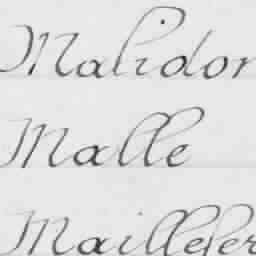 Malidor
Malle
Maillefer